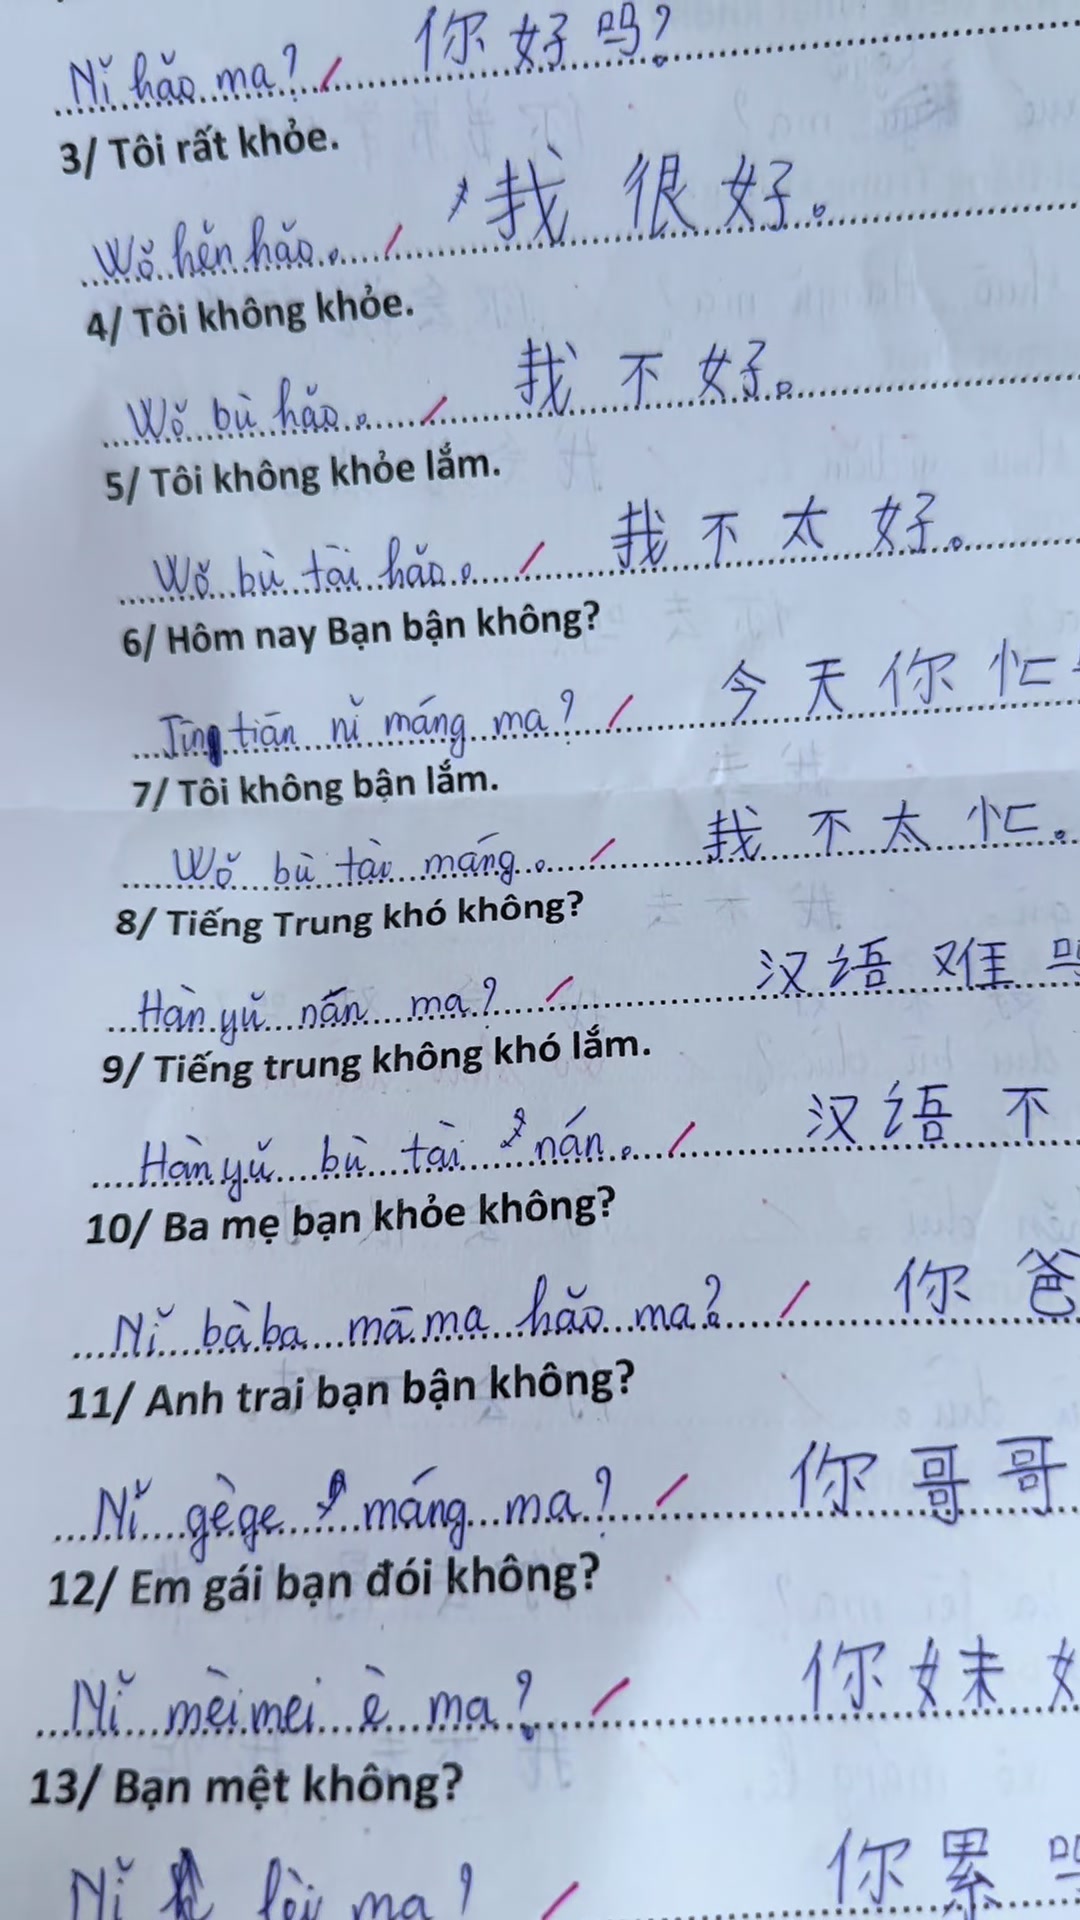 Nǐ hǎo ma? 你好吗?
3/ Tôi rất khỏe.
Wǒ hěn hǎo. 我很好。
4/ Tôi không khỏe.
Wǒ bù hǎo. 我不好。
5/ Tôi không khỏe lắm.
Wǒ bù tài hǎo. 我不太好。
6/ Hôm nay Bạn bận không?
Jīn tiān nǐ máng ma? 今天你忙
7/ Tôi không bận lắm.
Wǒ bù tài máng. 我不太忙。
8/ Tiếng Trung khó không?
Hàn yǔ nán ma? 汉语难
9/ Tiếng trung không khó lắm.
Hàn yǔ bù tài nán. 汉语不
10/ Ba mẹ bạn khỏe không?
Nǐ bàba māma hǎo ma? 你爸
11/ Anh trai bạn bận không?
Nǐ gège máng ma? 你哥哥
12/ Em gái bạn đói không?
Nǐ mèimei è ma? 你妹
13/ Bạn mệt không?
Nǐ lèi ma? 你累